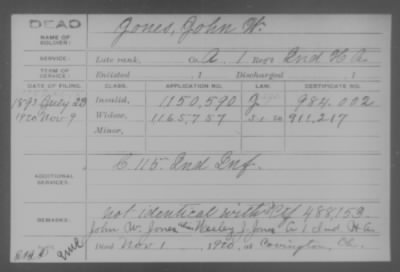 DEAD
NAME OF SOLDIER: Jones, John W.
SERVICE: Late rank, Co. A. 1 Reg't Ind H A.
TERM OF SERVICE: Enlisted , 1 Discharged , 1
DATE OF FILING. CLASS. APPLICATION NO. LAW. CERTIFICATE NO.
1893 July 28 Invalid, 1150,590 984.002
1920 Nov 9 Widow, 1165757 911,217
Minor,
ADDITIONAL SERVICES: C 115. Ind Inf.
REMARKS: not identical with Ctf 488,153
John W. Jones Wesley J. Jones A 1 Ind H A
Died Nov 1, 1920, at Covington,